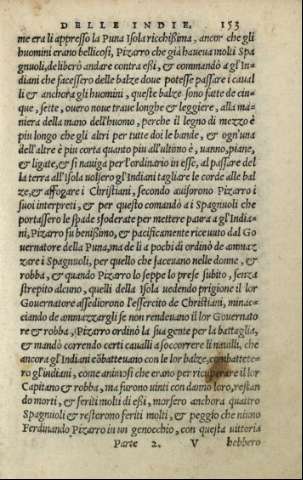 DELLE INDIE. 153
me era li appresso la Puna Isola ricchißima, ancor che gli
huomini erano bellicosi, Pizarro che già haueua molti Spa
gnuoli, deliberò andare contra eßi, & commandò a gl'In
diani che facessero delle balze doue potesse passare i caual
li & anchora gli huomini, queste balze sono fatte de cin=
que, sette, ouero noue traue longhe & leggiere, alla ma=
niera della mano dell'huomo, perche il legno di mezzo è
piu longo che gli altri per tutte doi le bande, & ogn'una
dell'altre è piu corta quanto piu all'ultimo è, uanno, piane,
& ligate, & si nauiga per l'ordinario in esse, al passare del
la terra all'Isola uolsero gl'Indiani tagliare le corde alle bal
ze, & affogare i Christiani, secondo auisorono Pizarro i
suoi interpreti, & per questo comandò a i Spagnuoli che
portassero le spade sfoderate per mettere paura a gl'India=
ni, Pizarro fu benißimo, & pacificamente riceuuto dal Go
uernatore della Puna, ma de li a pochi dì ordinò de amaz
zare i Spagnuoli, per quello che faceuano nelle donne, &
robba, & quando Pizarro lo seppe lo prese subito, senza
strepito alcuno, quelli della Isola uedendo prigione il lor
Gouernatore assediorono l'essercito de Christiani, minac=
ciando de amazzargli se non rendeuano il lor Gouernato
re & robba, Pizarro ordinò la sua gente per la battaglia,
& mandò correndo certi caualli a soccorrere li nauili, che
ancora gl'Indiani cõbatteuano con le lor balze, combattete=
ro gl'indiani, come animosi che erano per ricuperare il lor
Capitano & robba, ma furono uinti con danno loro, restan
do morti, & feriti molti di eßi, morsero anchora quattro
Spagnuoli & restorono feriti molti, & peggio che niuno
Ferdinando Pizarro in un genocchio, con questa uittoria
Parte 2. V hebbero